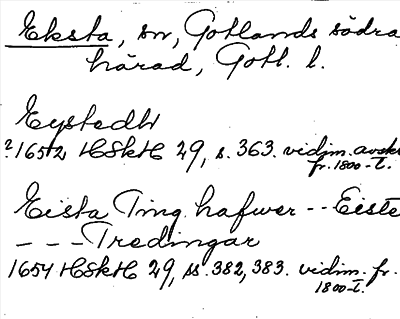 Eksta, sn, Gotlands södra
härad, Gotl. l.
Eystadh
? 1652 HSkH 29, s. 363. vidim. avskr
fr. 1800-t.
Eista Ting hafwer -- Eiste
--- Tredingar
1654 HSkH 29, ss. 382, 383. vidim. fr.
1800-t.